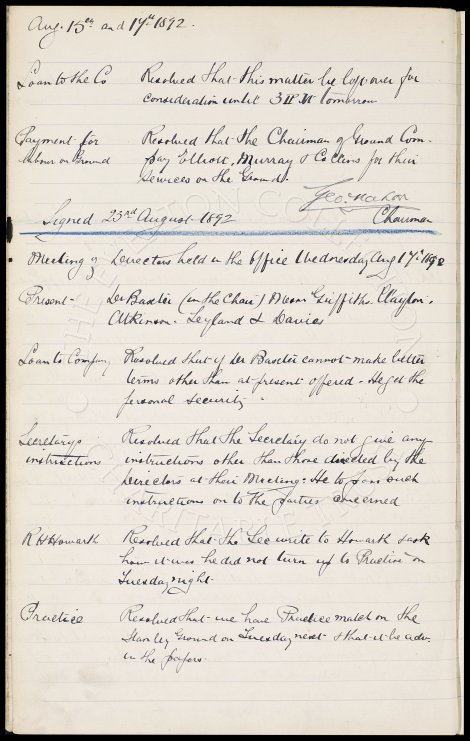 Aug. 15th and 17th 1892.
Loan to the Co Resolved that this matter be left over for
consideration until tomorrow
Payment for Resolved that the Chairman of Ground Com-
labour on Ground pay Elliott, Murray & Collins for their
services on the Ground.
Geo. Mahon
Signed 23rd August 1892 Chairman
Meeting of Directors held in the Office Wednesday Aug 17th 1892
Present- Dr Baxter (in the Chair) Messrs Griffiths. Clayton.
Atkinson. Leyland & Davies
Loan to Company Resolved that if Dr Baxter cannot make better
terms other than at present offered - He get the
personal security
Secretarys Resolved that the Secretary do not give any
instructions instructions other than those directed by the
Directors at their Meeting. He to pass such
instructions on to the parties concerned
R H Howarth Resolved that the Sec write to Howarth & ask
how it was he did not turn up to Practice on
Tuesday night.
Practice Resolved that we have Practice match on the
Stanley Ground on Tuesday next & that it be adv.
in the papers.